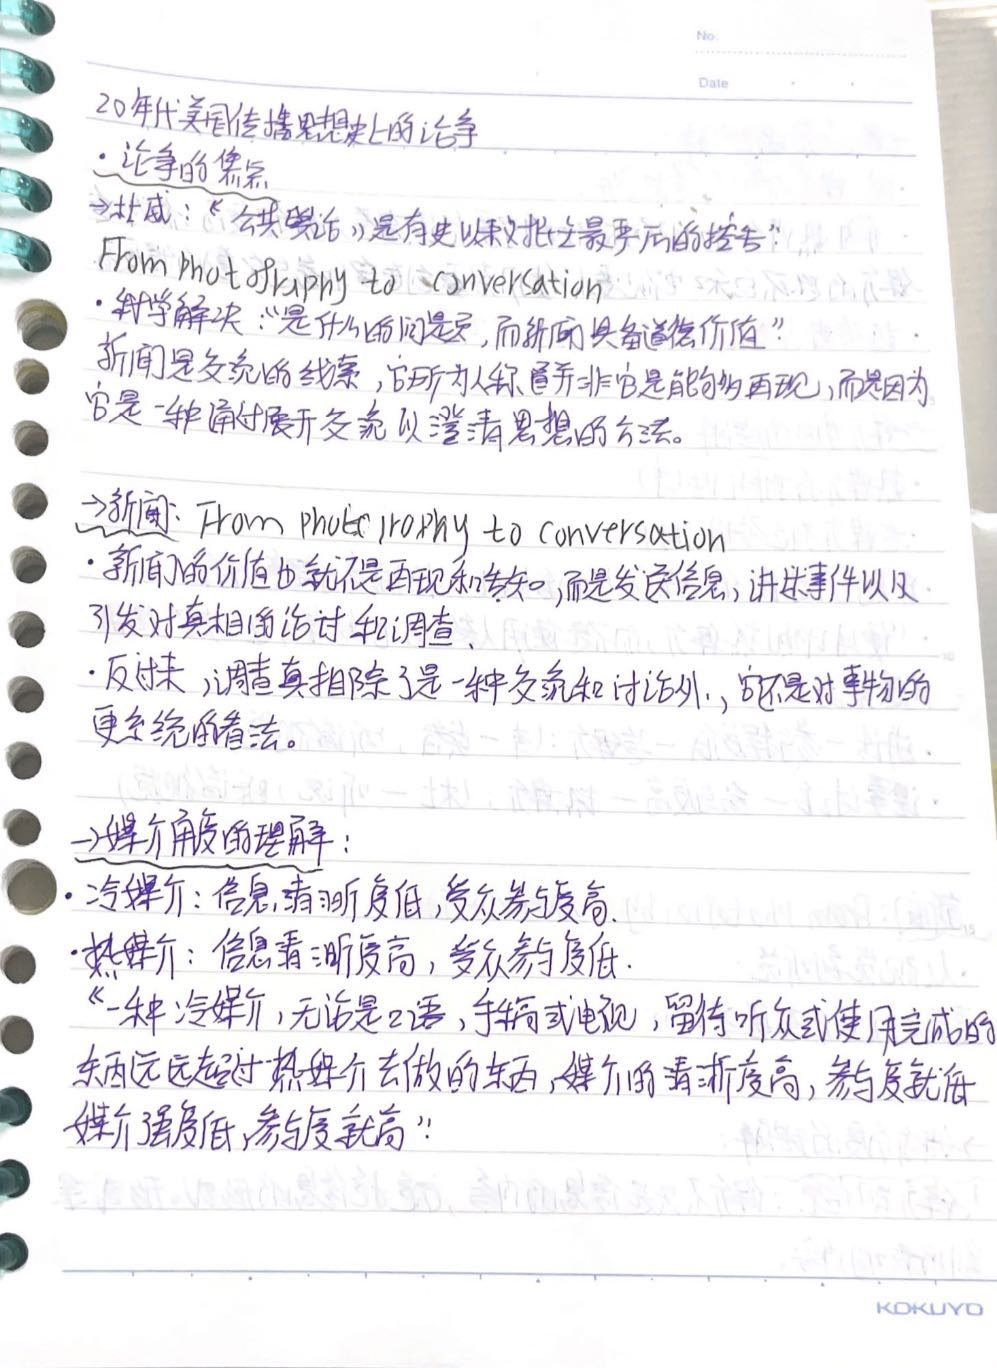 No.
Date
20年代美国传播思想史上的论争
·论争的焦点
→杜威：“《公共舆论》是有史以来对民主最严厉的控告”
From photography to conversation
·科学解决：“是什么”的问题，而新闻具备道德价值”
新闻是交流的线索，它所为人称道并非它是能够再现，而是因为
它是一种通过展开交流以澄清思想的方法。
→新闻：From photography to conversation
·新闻的价值也就不是再现和告知，而是发送信息，讲述事件以及
引发对真相的讨论和调查.
·反过来，调查真相除了是一种交流和讨论外，它还是对事物的
更系统的看法。
→媒介角度的理解：
·冷媒介：信息清晰度低，受众参与度高.
·热媒介：信息清晰度高，受众参与度低.
“一种冷媒介，无论是口语，手稿或电视，留待听众或使用完成的
东西远远超过热媒介去做的东西，媒介的清晰度高，参与度就低
媒介强度低，参与度就高”
KOKUYO